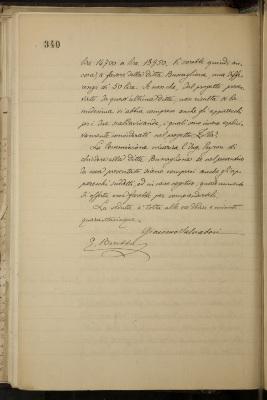 340
lire 14700 a lire 13950. Vi sarebbe quindi an-
cora, a favore della ditta Buscaglione, una diffe-
renza di 50 lire. Se non che, dal progetto presen-
tato da quest'ultima Ditta, non risulta se la
medesima vi abbia compreso anche gli apparecchi
per i due scaldavivande, i quali sono invece espli-
citamente considerati nel progetto Zolla.
La Commissione incarica l'Ing. di
chiedere alla ditta Buscaglione se nel preventivo
da essa presentato siano compresi anche gli ap-
parecchi suddetti, ed in caso negativo, quale aumento
di offerta sarà fattibile per comprenderli.
La seduta è tolta alle ore dieci e minuti
quarantacinque.
Giacomo Salvadori
E. Brusso